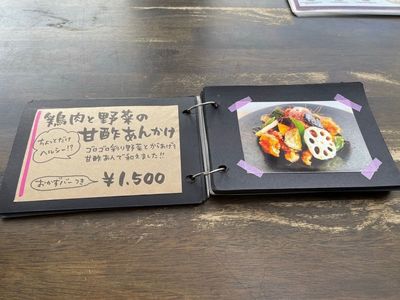 鶏肉と野菜の
甘酢あんかけ
ちょっとだけ
ヘルシー!?
ゴロゴロ彩り野菜とからあげを
甘酢あんで和えました!!
おかずバーつき
¥1,500